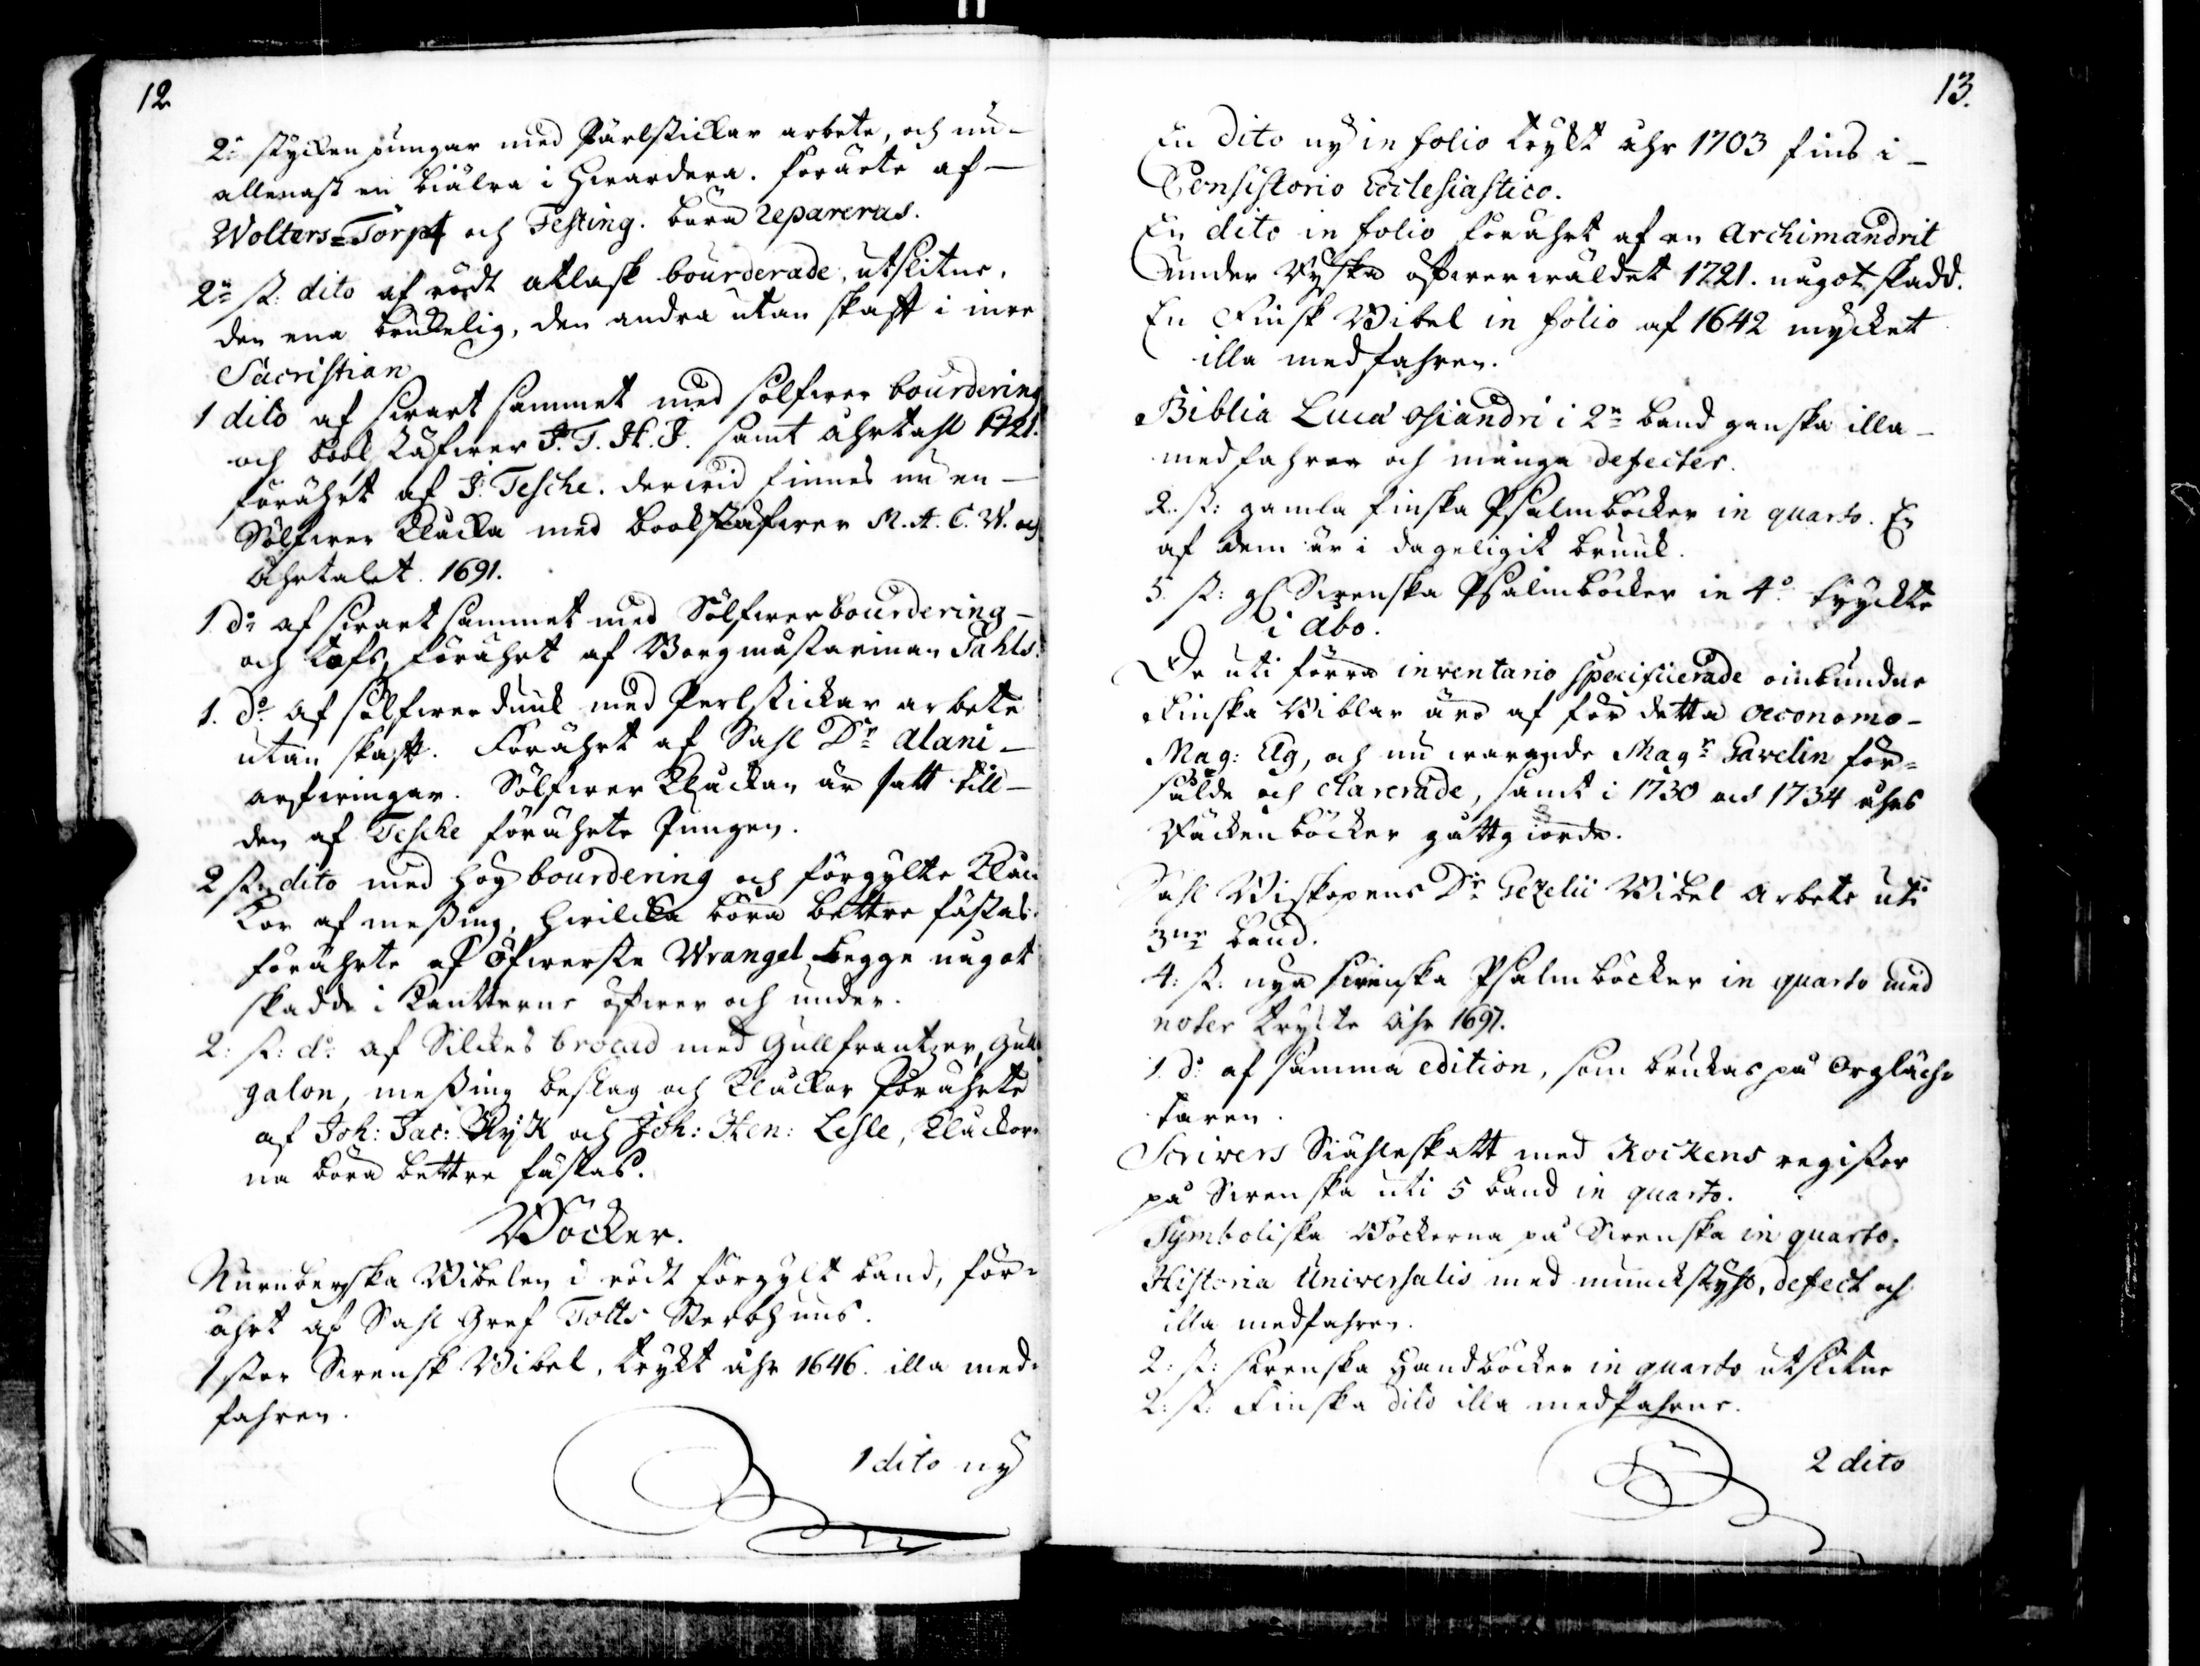 12
2:ne stycken pungar med Pärlstickar arbete, och nu-
allenast en biälra i hwardera. Förärte af-
Wolters=Törp och Festing. böra repareras.
2:ne st: dito af rödt atlask bourderade, utslitne,
den ena brukelig, den andra utan skaft i inre
Sacristian
1 dito af swart sammet med sölfwer bourdering
och bookstäfwer J. T. H. J. samt åhrtahl 1721.
förährt af J. Tesche. derwid finnes nu en-
Sölfwer Klucka med bookstäfwer M. A. C. W. och
åhrtalet. 1691.
1 d:o af swart sammet med Sölfwer bourdering-
och tofs, förährt af Borgmästarinnan Påhls.
1. d:o af sölfwer duuk med Perlstickar arbete
utan skaft. Förährt af Sahl D:r Alani-
arfwingar. Sölfwer Kluckan är satt till-
den af Tesche förährte Pungen.
2 st: dito med hög bourdering och förgylte Kluc
kor af messing, hwilcka böra bettre fästas.
förährte af Öfwerste Wrangel begge något
skadde i Kantterne öfwer och under.
2: st: d:o af Silckes brocad med Gullfrantzer, Gull
galon, messing beslag och Kluckor förährte
af Joh: Jac: RyK och Joh: Hen: Lesle, Kluckor-
na böra bettre fästas.
Böcker.
Nurnbergska Bibelen i rödt förgylt band, för-
ährt af Sahl Gref Totts Sterbhuus.
1 stor Swensk Bibel, tryckt åhr 1646. illa med-
fahren.
1 dito ny
13.
En dito ny in folio tryckt åhr 1703 fins i-
Consistorio Ecclesiastico.
En dito in folio förährt af en Archimandrit
under Ryska öfwerwäldet 1721. något skadd.
En Finsk Bibel in folio af 1642 mycket
illa medfahren.
Biblia Lucæ Osiandri i 2:ne band ganska illa-
medfahren och många defecter.
2. st: gamla finska Psalmböcker in quarto. En
af dem är i dageligit bruuk.
5. st: gl Swenska Psalmböcker in 4:o tryckte
i Åbo.
De uti förra inventario specificerade oinbundne
Finska Biblar äro af för detta oeconomo-
Mag: Elg, och nu warande Mag:r Pavelin för-
sålde och clarerade, samt i 1730 och 1734 åhrs
Räckenböcker gattgiorde.
Sahl Biskopens D:r Gezelii Bibel Arbete uti
3:ne band.
4: st. nya swenska Psalmböcker in quarto med
noter tryckte åhr 1697.
1. d:o af samma edition, som brukas på Orgläck-
taren.
Scrivers Siähleskatt med Kockens register
på Swenska uti 5 band in quarto.
Symboliska Böckerna på Swenska in quarto.
Historia Universalis med munckstyhl, defect och
illa medfahren.
2: st: swenska Handböcker in quarto utslitne
2: st: Finska dito illa medfahrne.
2 dito